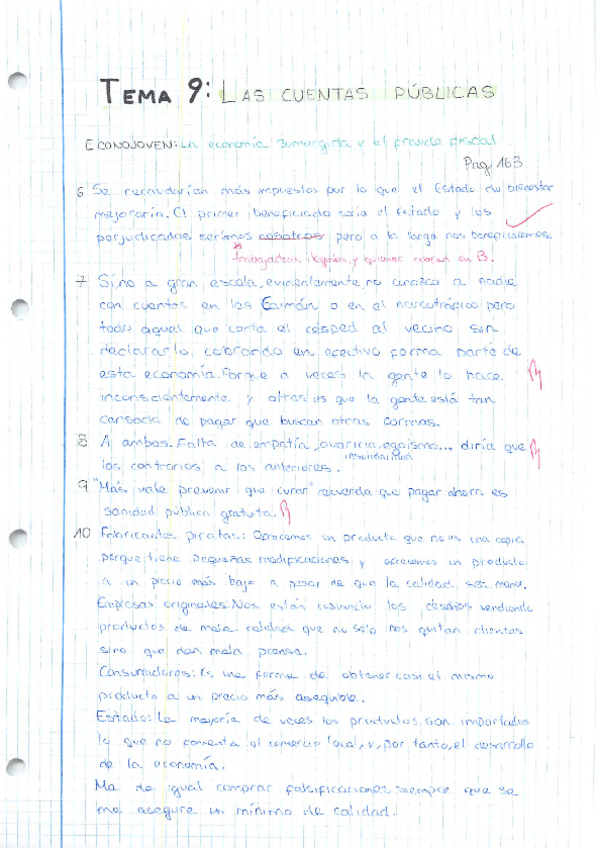 TEMA 9: LAS CUENTAS PÚBLICAS
ECONOJOVEN: La economía sumergida y el fraude fiscal
Pag 163
6 Se recaudarían más impuestos por lo que el Estado de bienestar
mejoraría. El primer beneficiado sería el Estado y los
perjudicados seríamos nosotros pero a la larga nos beneficiaremos.
trabajadores ilegales, y quienes cobran en B.
7 Sí, no a gran escala, evidentemente no conozco a nadie
con cuentas en las Caimán o en el narcotráfico pero
todo aquel que corta el césped al vecino sin
declararlo, cobrando en efectivo forma parte de
esta economía. Porque a veces la gente lo hace
inconscientemente y otras es que la gente está tan
cansada de pagar que buscan otras formas.
8 A ambos. Falta de empatía, avaricia, egoísmo... diría que
insolidaridad
los contrarios a los anteriores.
9 "Más vale prevenir que curar" recuerda que pagar ahora es
sanidad pública gratuita.
10 Fabricantes piratas: Ofrecemos un producto que no es una copia
porque tiene pequeñas modificaciones y ofrecemos un producto
a un precio más bajo a pesar de que la calidad sea menor.
Empresas originales: Nos están robando los diseños vendiendo
productos de mala calidad que no sólo nos quitan clientes
sino que dan mala prensa.
Consumidores: Es una forma de obtener casi el mismo
producto a un precio más asequible.
Estado: La mayoría de veces los productos son importados
lo que no fomenta el comercio local y, por tanto, el desarrollo
de la economía.
Me da igual comprar falsificaciones siempre que se
me asegure un mínimo de calidad.